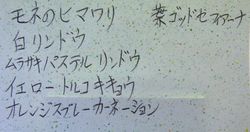 モネのヒマワリ
白リンドウ
ムラサキパステルリンドウ
イエロートルコキキョウ
オレンジスプレーカーネーション
葉ゴッドセフィアーナ